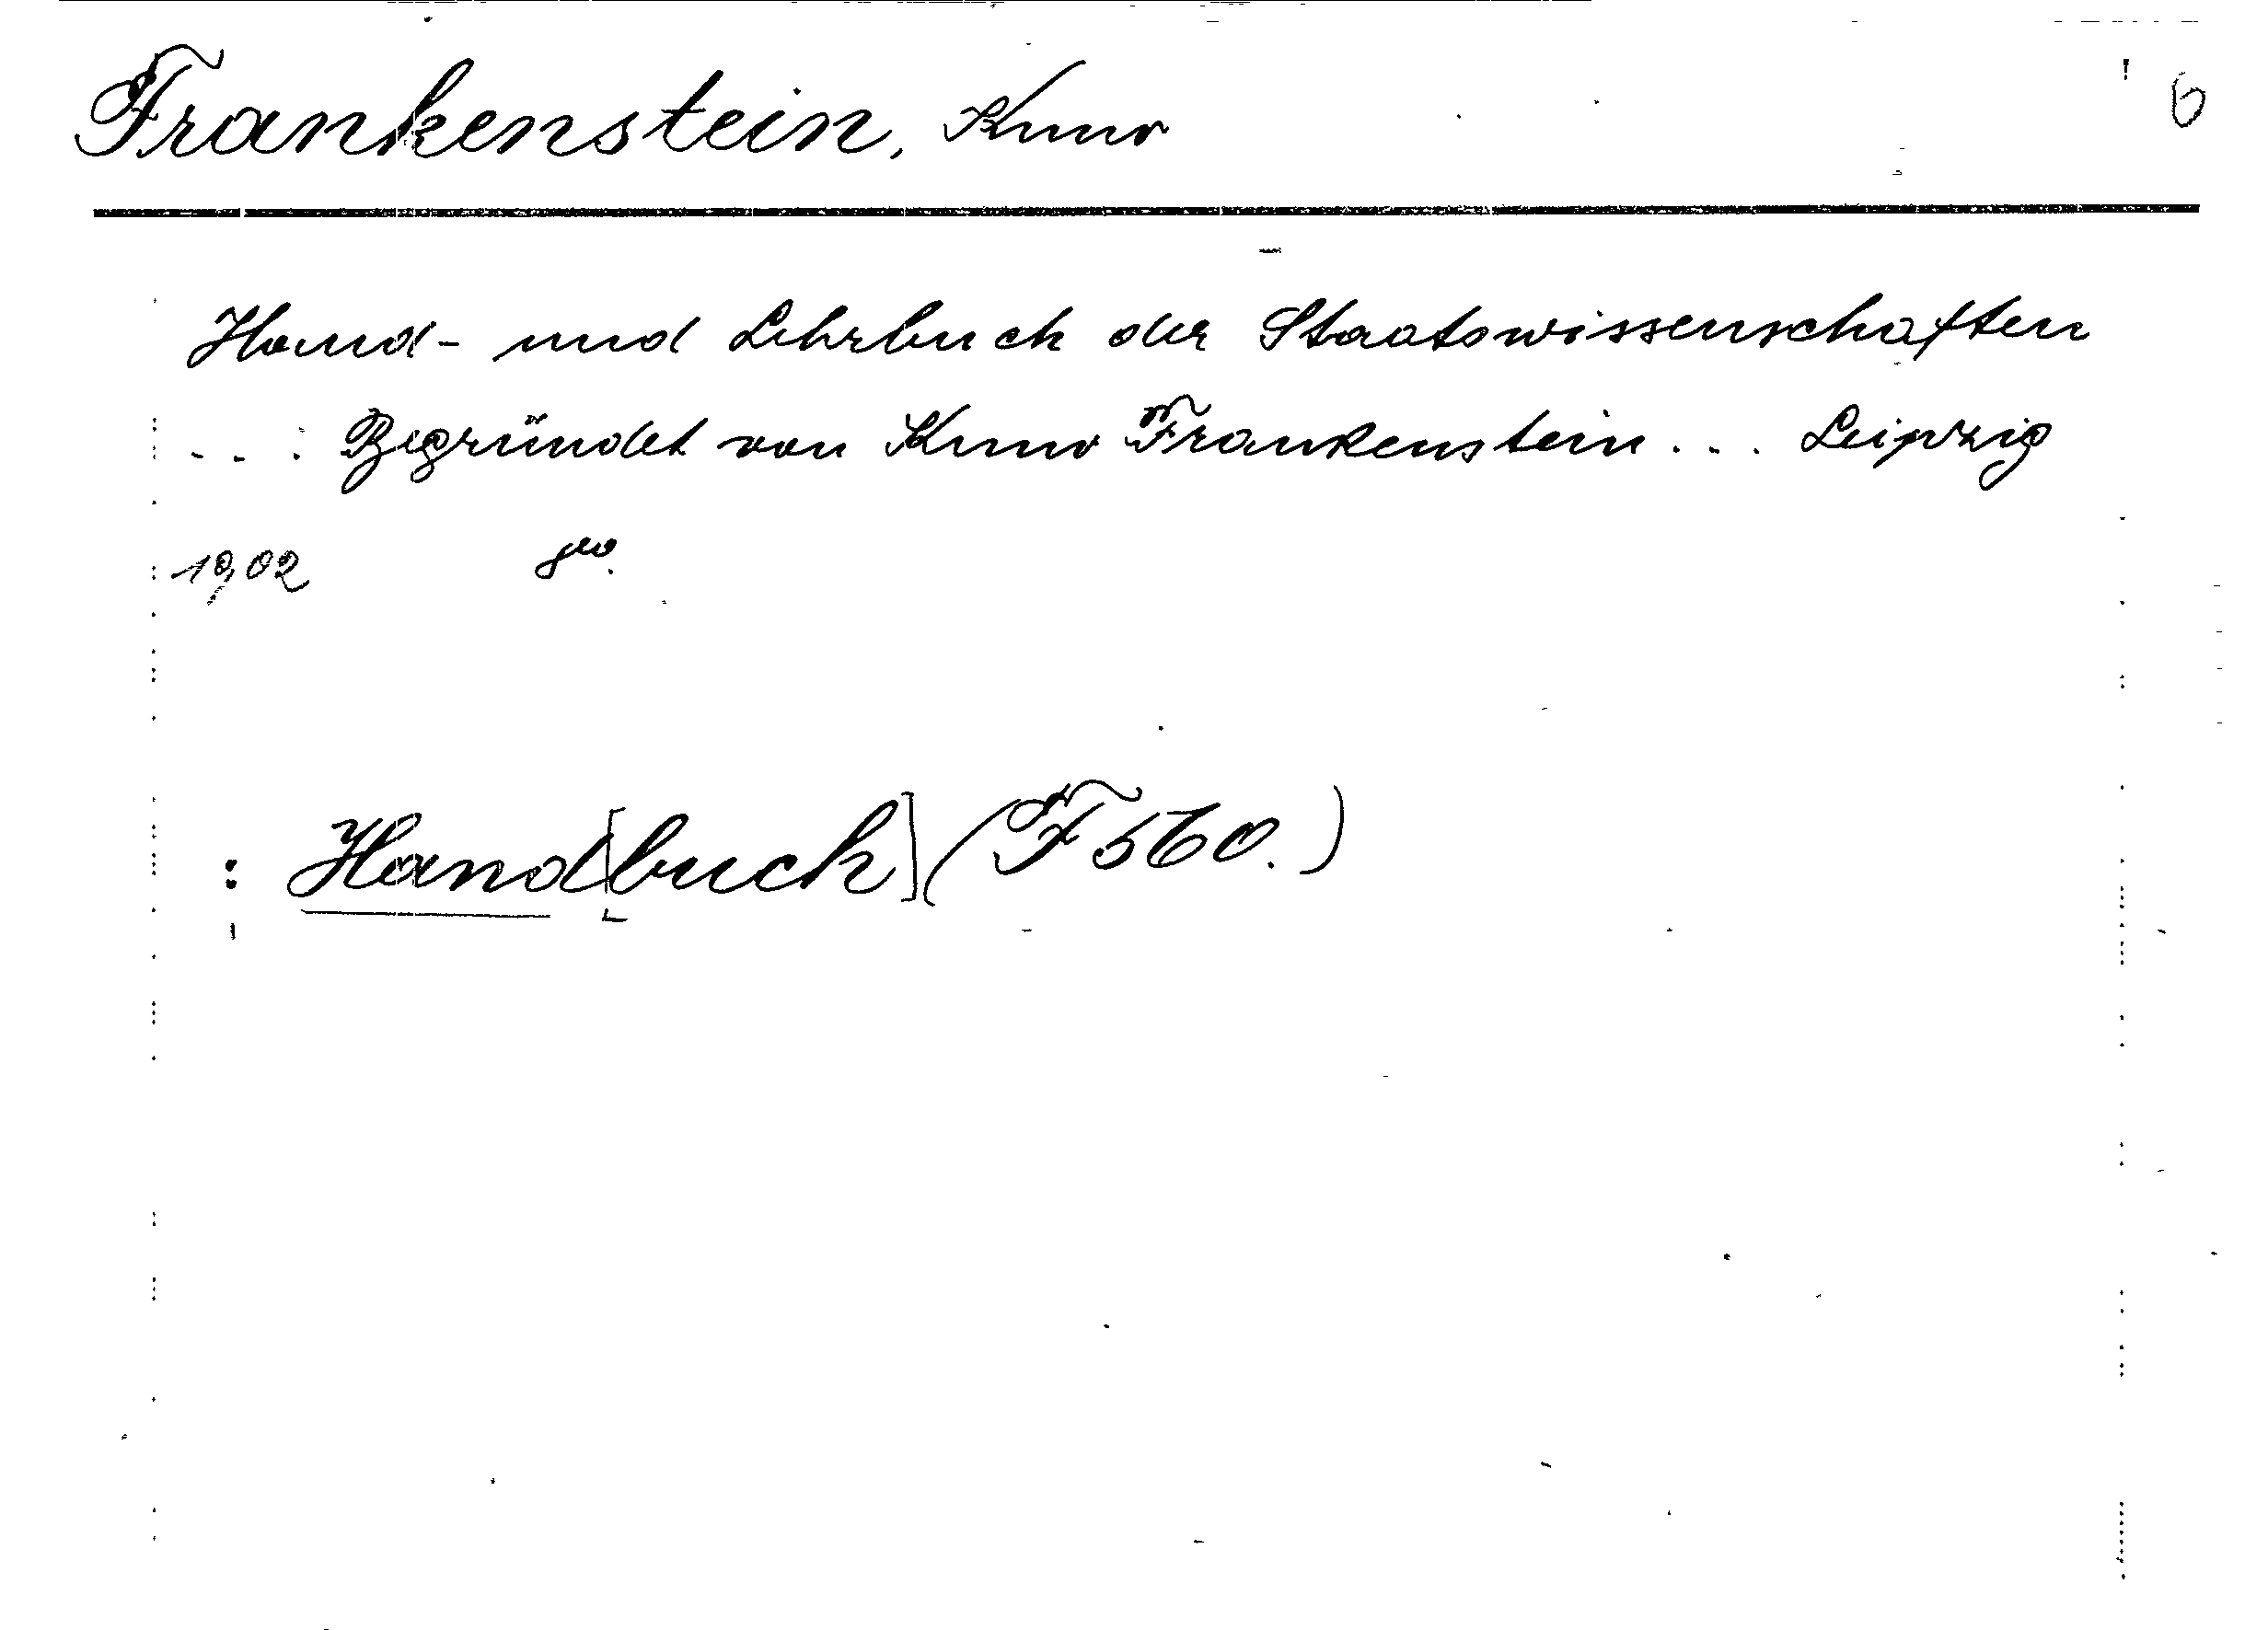 Frankenstein, Kuno 6
Hand- und Lehrbuch der Staatswissenschaften
... Begründet von Kuno Frankenstein... Leipzig
1902
: Hand[buch] (F 560.)